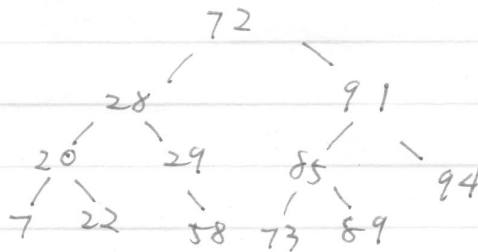 72
28 91
20 29 85 94
7 22 58 73 89